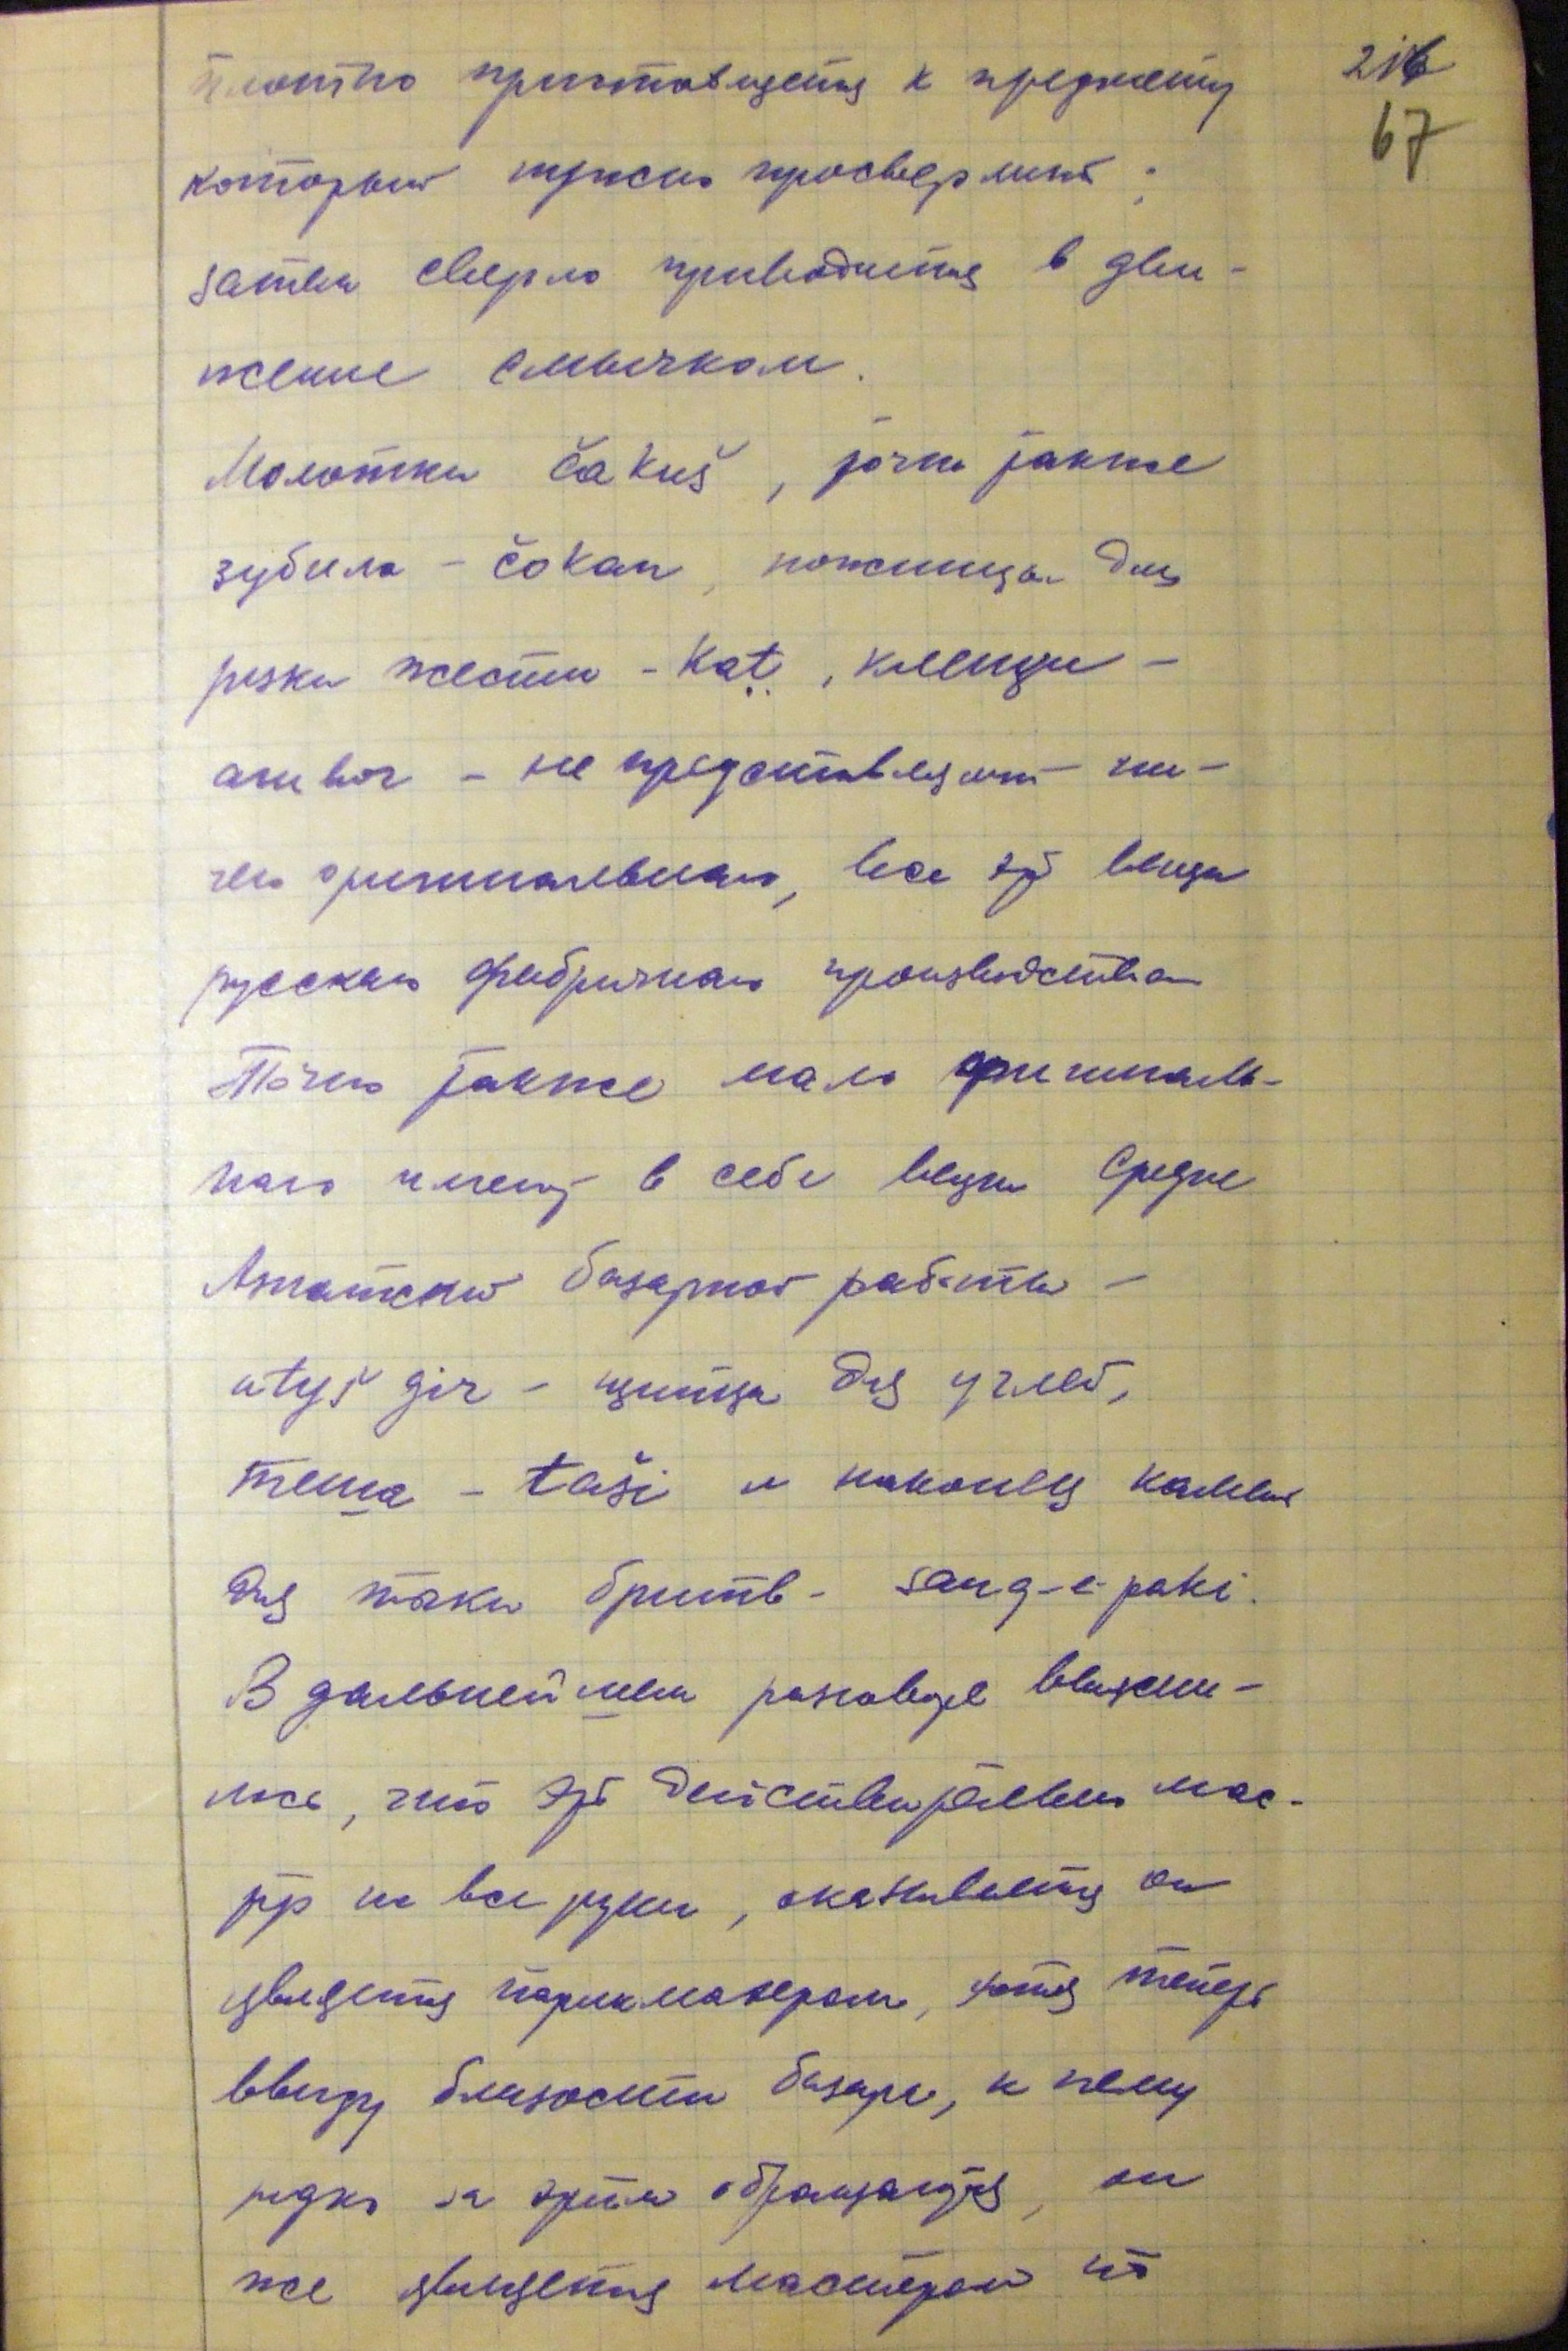 плотно приставляется к предмету
216
67
который нужно просверлить;
затем сверло приводится в дви-
жение смычком.
Молотки čakuš, точно также
зубила - čokan, ножницы для
резки жести - kaţ, клещи -
ambor - не представляют ни-
чего оригинального, все это вещи
русского фабричного производства
Точно также мало оригиналь-
ного имеют в себе вещи Средне
Азиатской базарной работы -
atyš gir - щипцы для углей,
теша - taši и наконец камень
для точки бритв - sang-e-paki.
В дальнейшем разговоре выясни-
лось, что это действительно мас-
тер на все руки, оказывается он
является парикмахером, хотя теперь
ввиду близости базара, к нему
редко за этим обращаются, он
же является мастером по